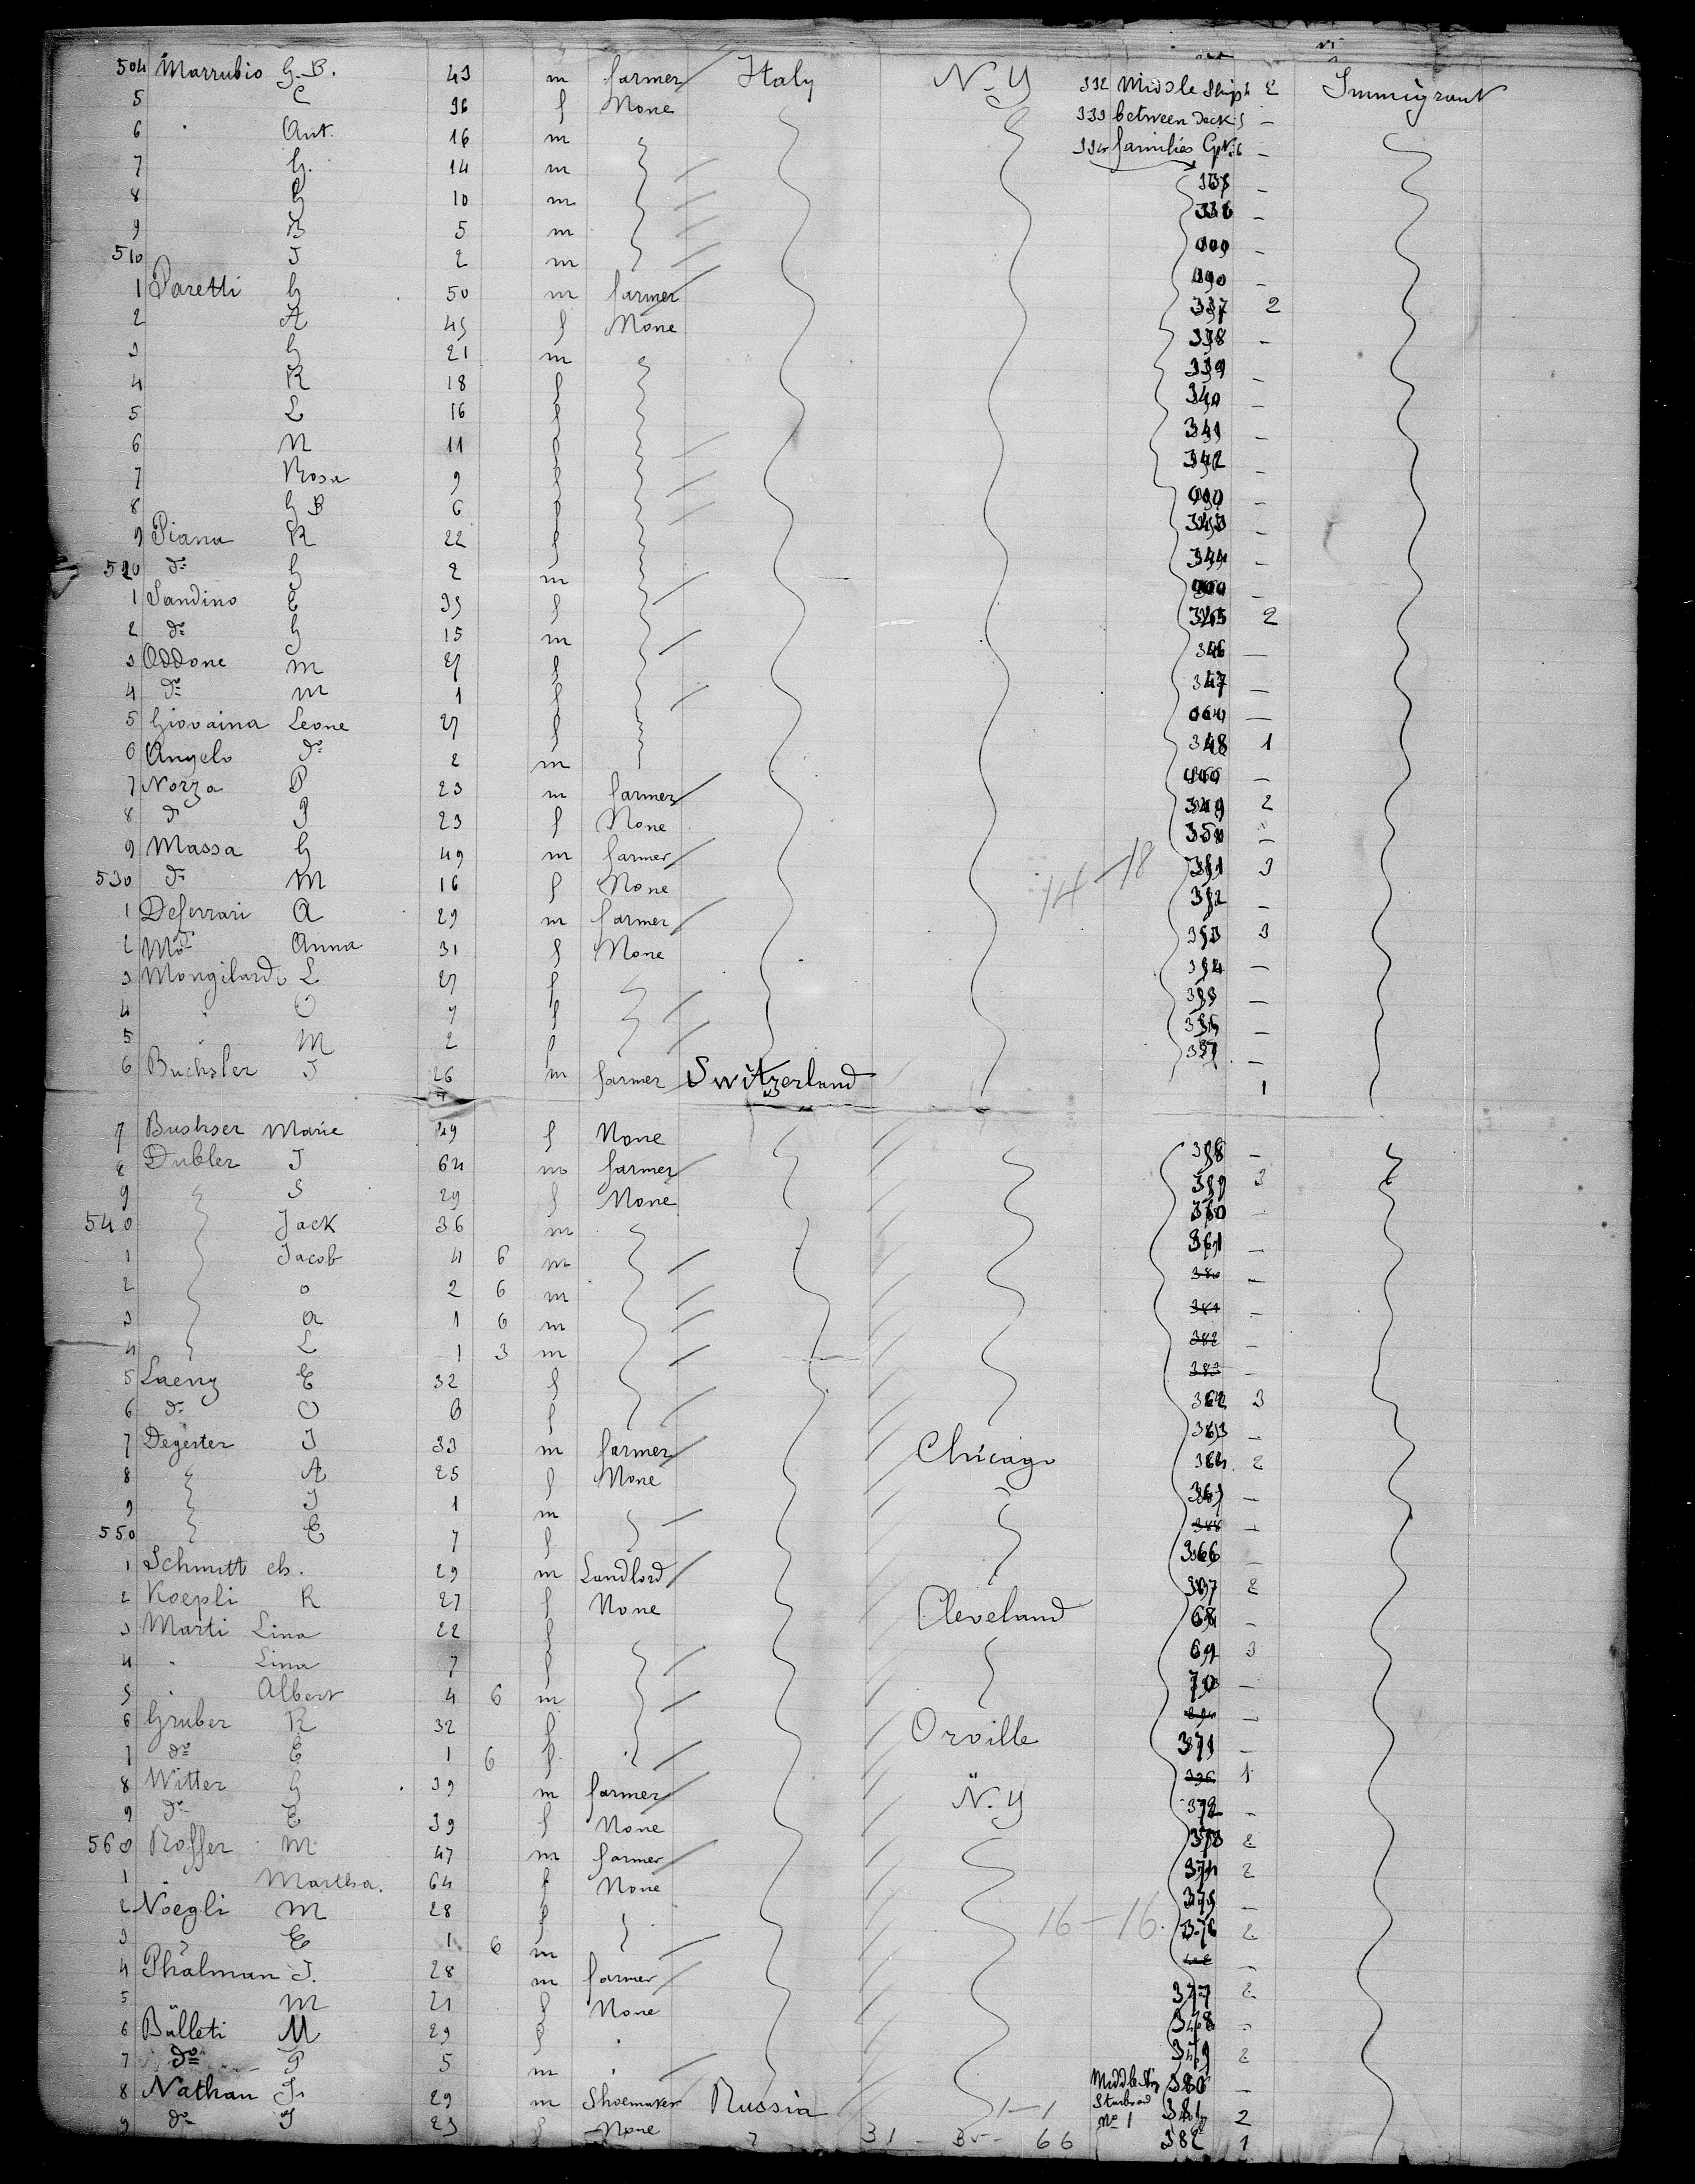 504 Marrubio G. B. 43 m farmer Italy N. Y 332 Middle Ship 2 Immigrant
5 C 36 f None 333 between Deck —
6 " Ant. 16 m 334 families —
7 G. 14 m —
8 G 10 m 336
9 B 5 m —
510 J 2 m —
1 Paretti G 50 m farmer 337 2
2 A 45 f None 338 —
3 G 21 m 339
4 R 18 f 340 —
5 L 16 f 341 —
6 N 11 f 342
7 Rosa 9 f —
8 G B 6 f 343 —
9 Piana R 22 f 344 —
520 do G 2 m
1 Sandino C 35 f 345 2
2 do G 15 m 346 —
3 Oddone m 27 f 347 —
4 do m 1 f —
5 Giovaina Leone 27 f 348 1
6 Angelo do 2 m —
7 Norza P 23 m farmer 349 2
8 do P 23 f None 350 —
9 Massa G 49 m farmer 351 3
14 - 18
530 do M 16 f None 352 —
1 Deferrari A 29 m farmer 353 3
2 do Anna 31 f None 354 —
3 Mongilardo L 27 f 355 —
4 " O 7 f 356 —
5 " M 2 f 357 —
6 Buchsler J 26 m farmer Switzerland 1
7 Bushser Marie 49 f None 358 —
8 Dubler J 64 m farmer 359 3
9 S 29 f None 360 —
540 Jack 36 m 361 —
1 Jacob 4 6 m 380 —
2 o 2 6 m 381 —
3 a 1 6 m 382 —
4 L 1 3 m 383 —
5 Laeng E 32 f 362 3
6 do O 6 f 363 —
7 Degester J 33 m farmer Chicago 364 2
8 A 25 f None 365 —
9 J 1 m 388 —
550 E 7 f 366 —
1 Schmitt ch. 29 m Landlord 367 2
2 Koepli R 27 f None Cleveland 68 —
3 Marti Lina 22 f 69 3
4 " Lina 7 f 70 —
5 " Albert 4 6 m —
6 Gruber R 32 f Orville 371 —
7 do E 1 6 f 1
8 Witter G 39 m farmer N. Y 372 —
9 do E 39 f None 373 2
560 Roffer M 47 m farmer 374 2
1 " Martha. 64 f None 375 —
2 Noegli M 28 f 16 - 16. 376 2
3 " E 1 6 m —
4 Phälman J. 28 m farmer 377 2
5 M 21 f None 378 -
6 Bülleti M 29 f 379 2
7 do P 5 m 380 —
8 Nathan J. 29 m Shoemaker Russia 1 - 1 Middle Ship Starboard No 1 381 2
9 do J 23 f None 31 - 35 - 66 382 1